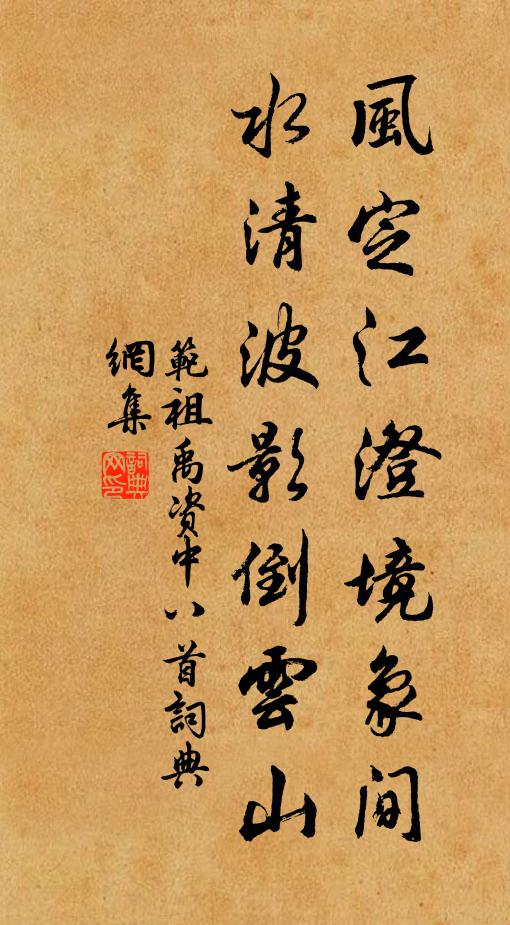 風定江澄境象间
水清波影倒雲山
範祖禹资中八首詞典
網集
詞典
网印